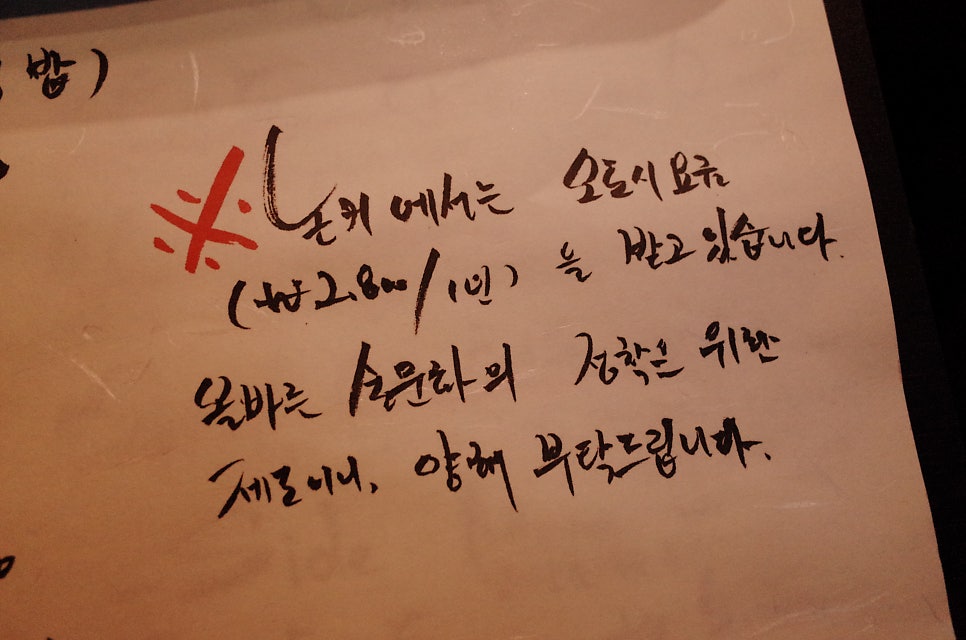 밥)
※ 논커에서는 오토시요금
(₩2,800/1인)을 받고 있습니다.
올바른 술문화의 정착은 위한
제도이니, 양해 부탁드립니다.